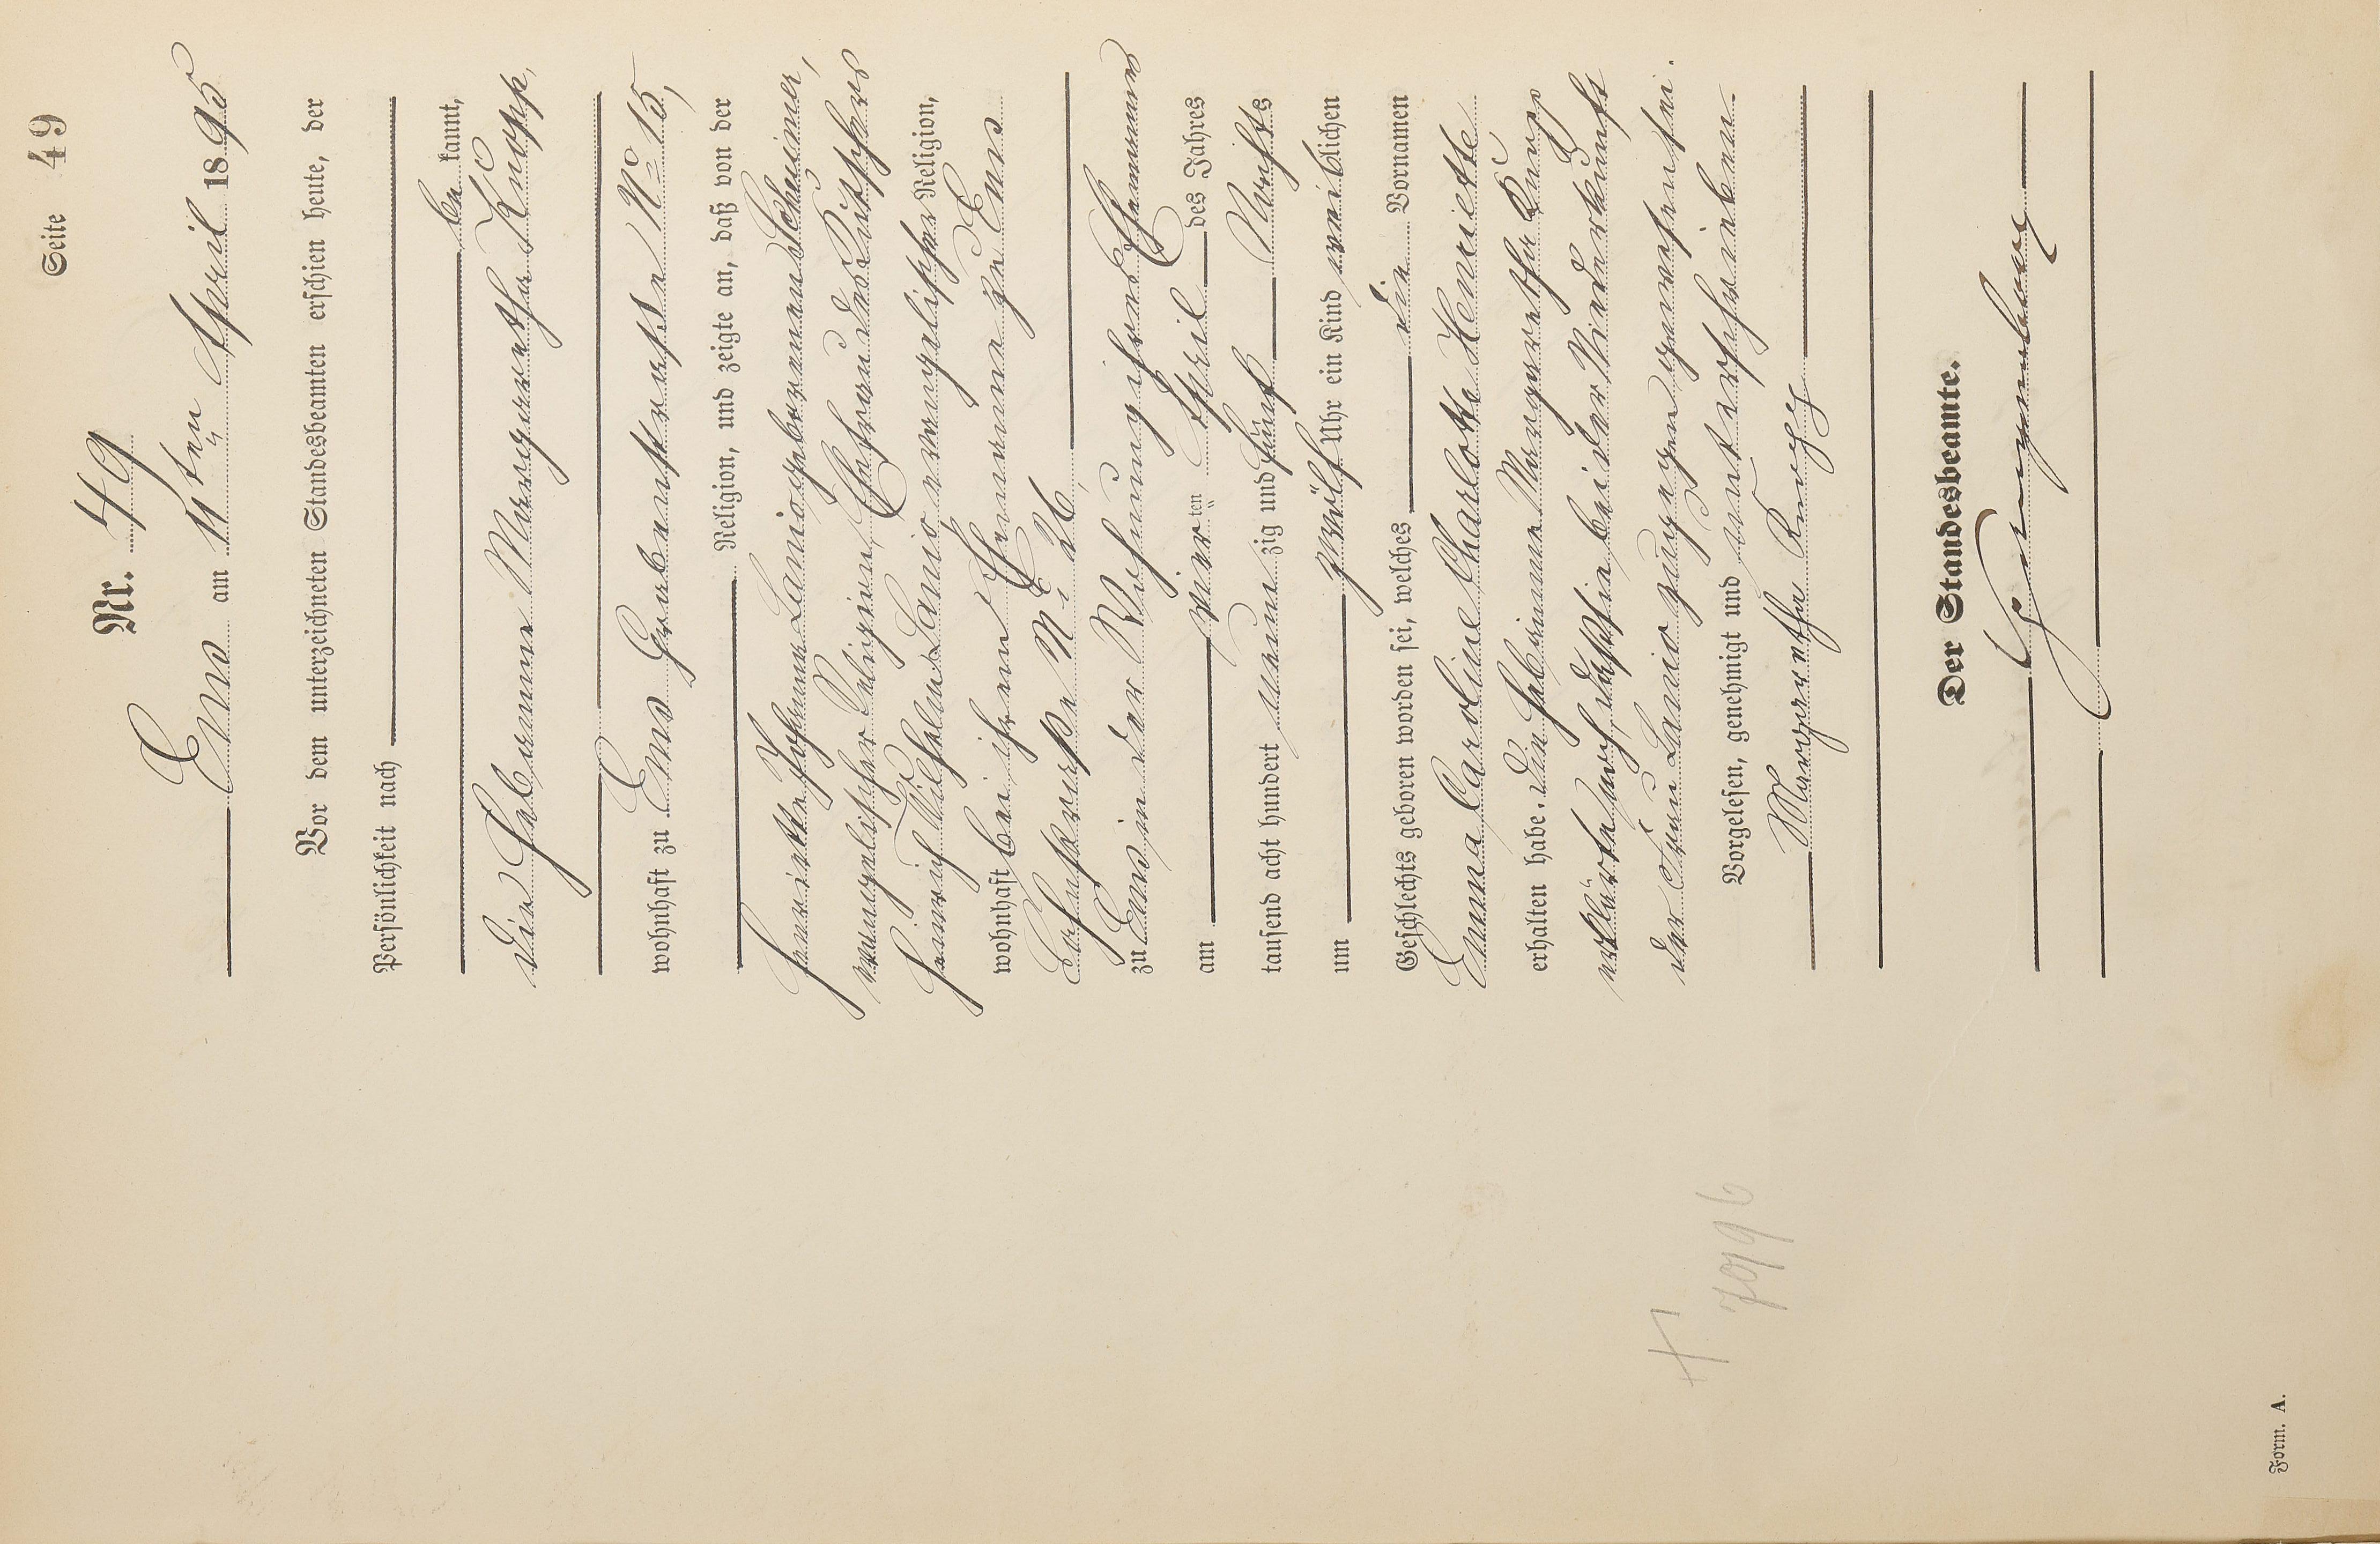 Seite 49
Nr. 49
Ems am 11ten April 1895
Vor dem unterzeichneten Standesbeamten erschien heute, der
Persönlichkeit nach
be kannt,
die Hebamme Margarethe Knopp,
wohnhaft zu Ems Grabenstraße No 15,
Religion, und zeigte an, daß von der
Henriette Johanna Lanio geborenen Schwimer,
evangelischer Religion, Ehefrau des Kutschers
Heinrich Wilhelm Lanio evangelischer Religion,
wohnhaft bei ihrem Ehemanne zu Ems
No 26,
zu Ems in der Wohnung ihres Ehemannes
am vier ten April des Jahres
tausend acht hundert neun zig und fünf Nachts
um zwölf Uhr ein Kind weib lichen
Geschlechts geboren worden sei, welches die Vornamen
Emma Caroline Charlotte Henriette
erhalten habe. Die Hebamme Margarethe Knopp
erklärte noch, daß sie bei der Niederkunft
der Ehefrau Lanio zugegen gewesen sei.
Vorgelesen, genehmigt und unterschrieben
Margarethe Knopp
Der Standesbeamte.
7996
Form. A.